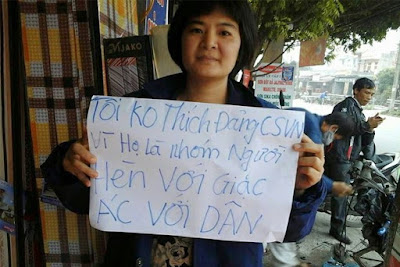 NIJAKO
Tôi KO THích ĐảNG CSVN
Vì Họ là Nhóm Người
HÈN Với Giặc
ÁC VỚI DÂN